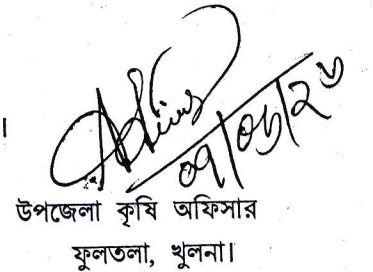 ০৭/০৮/২৬
উপজেলা কৃষি অফিসার
ফুলতলা, খুলনা।